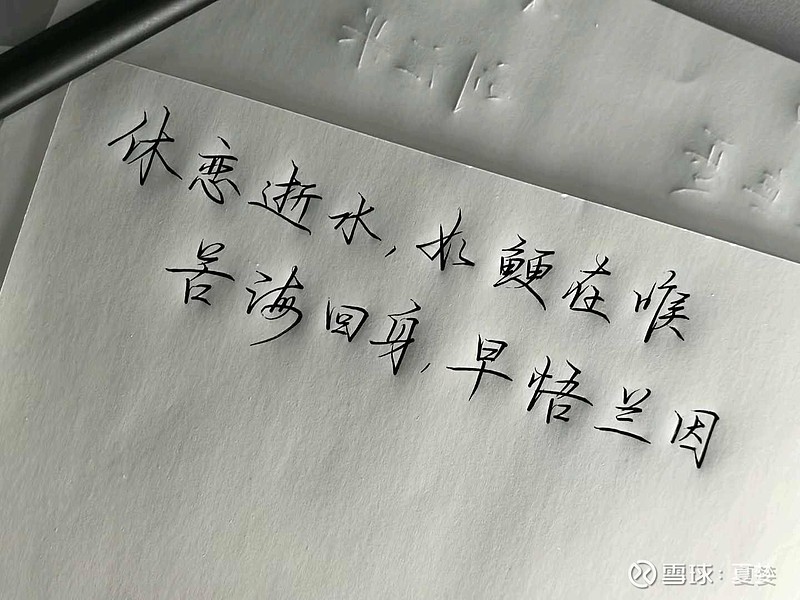 休恋逝水,如鲠在喉
苦海回身,早悟兰因
雪球:夏婪